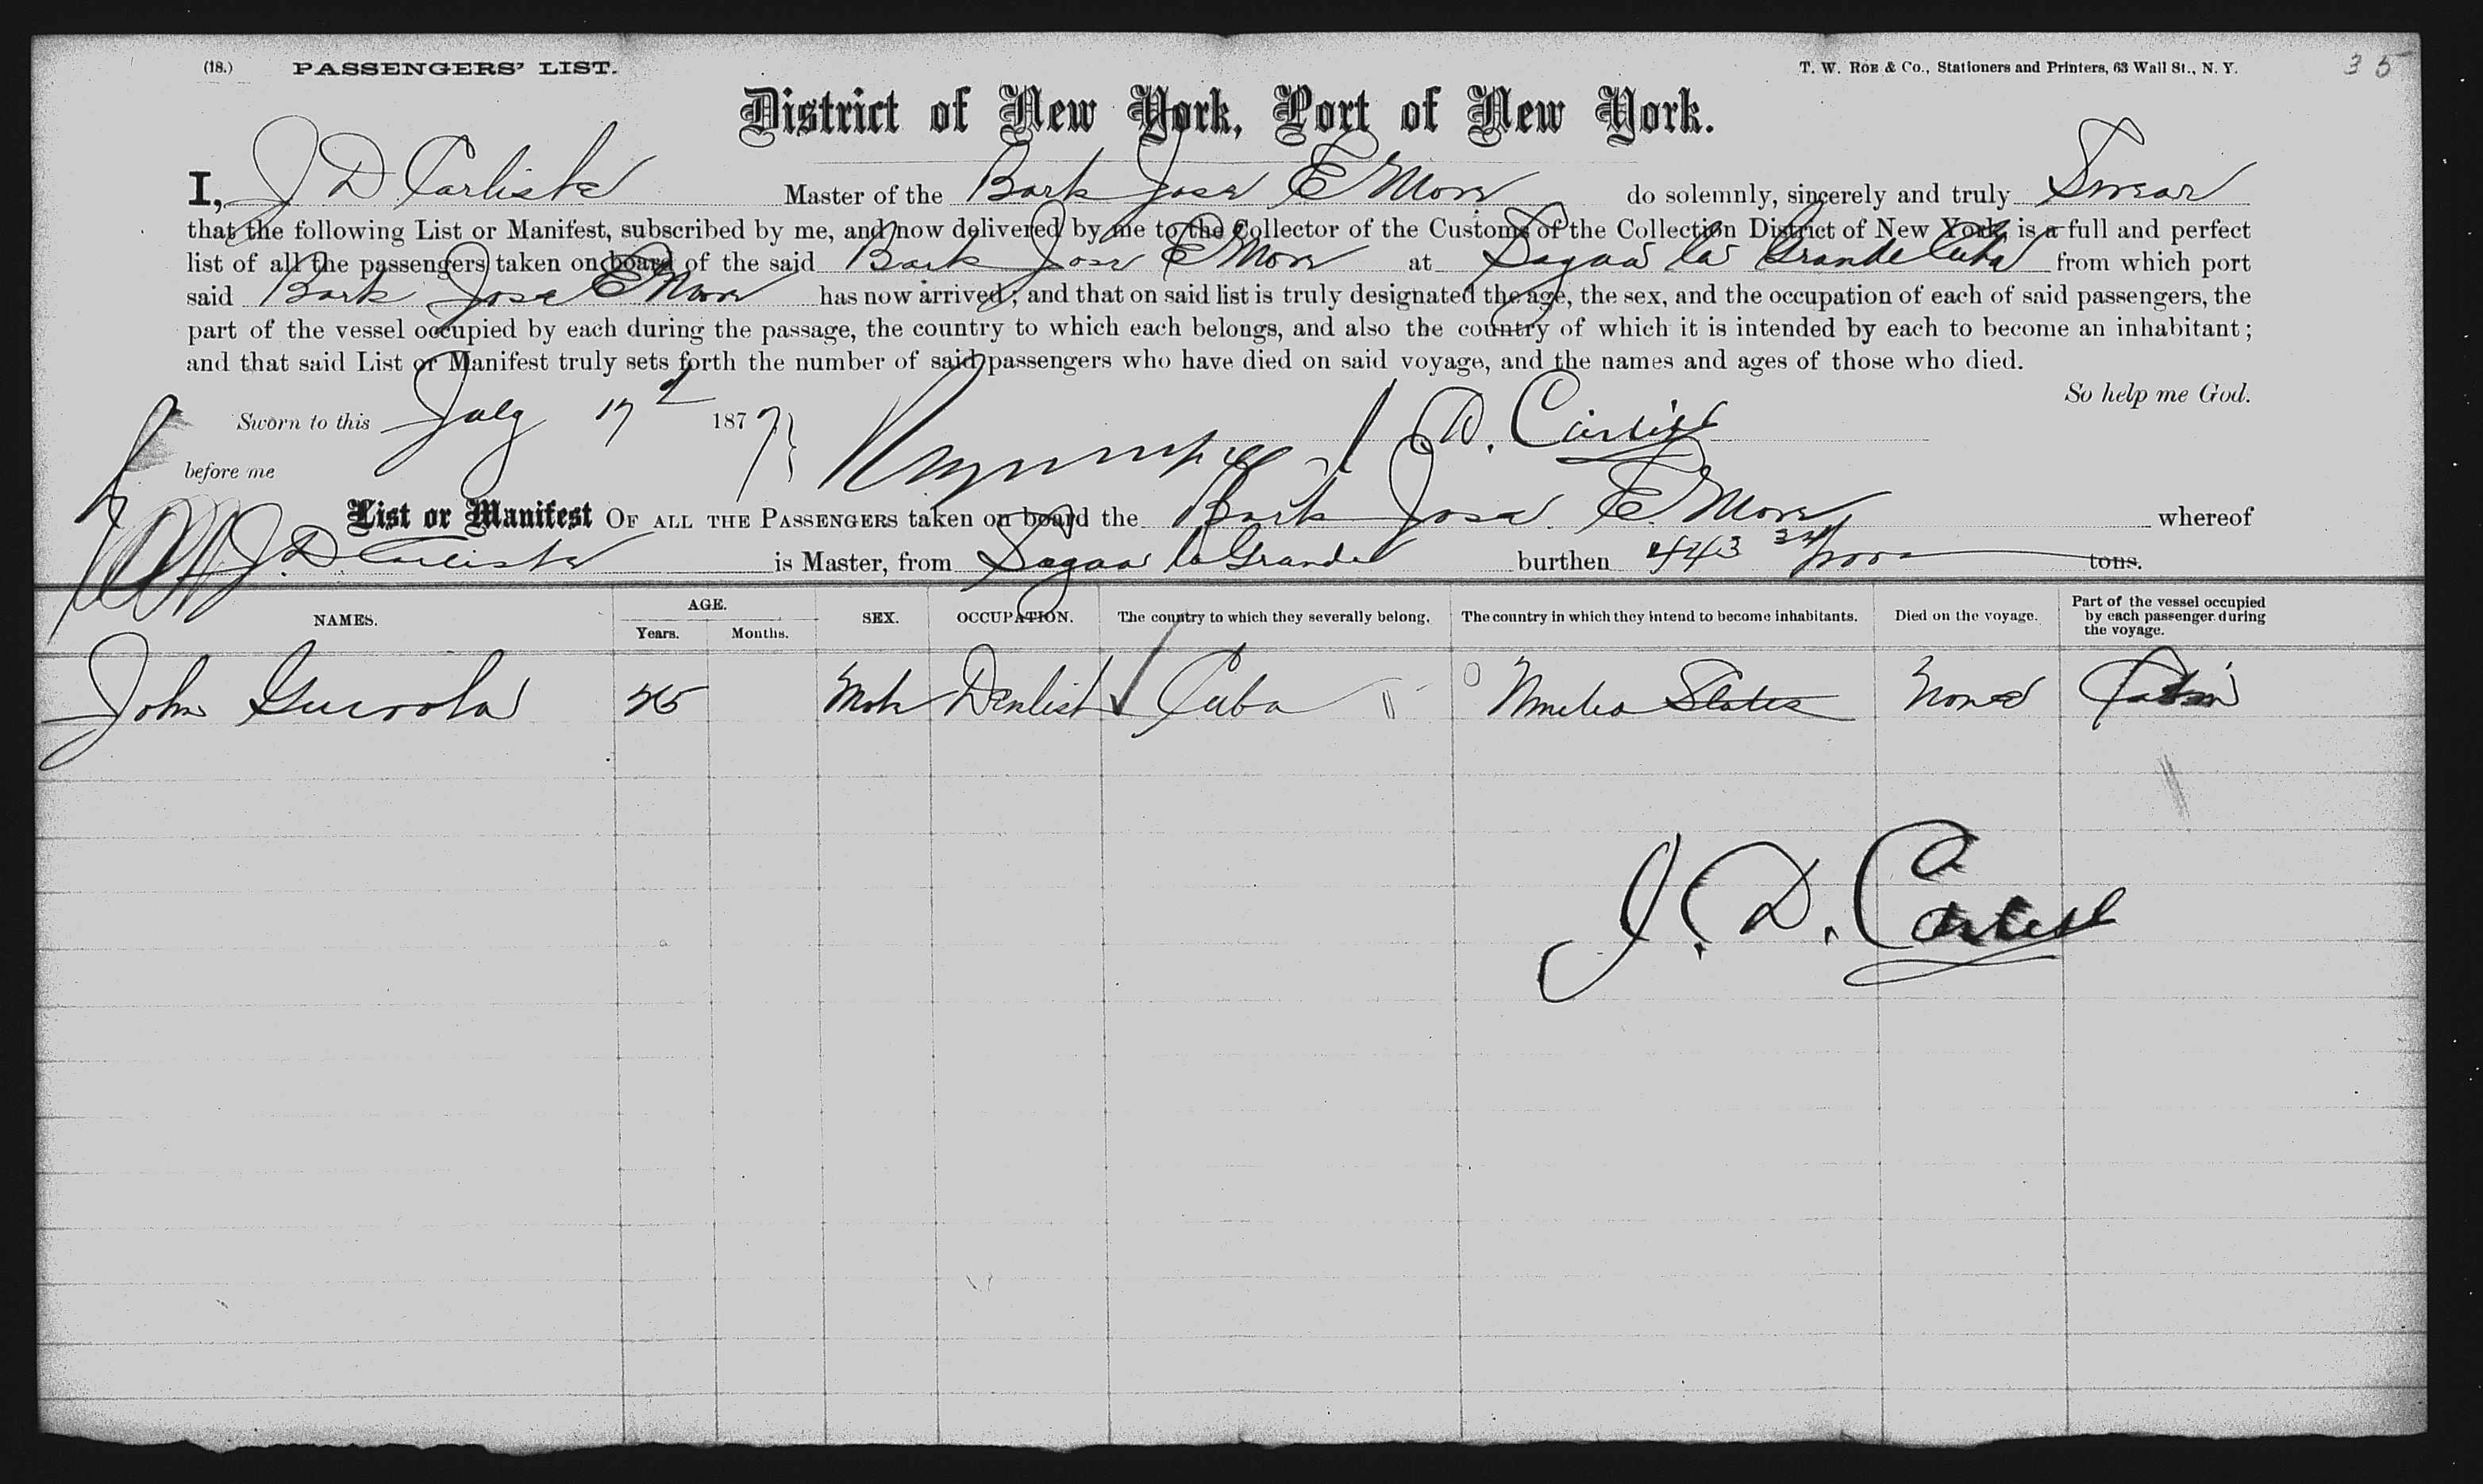 (18.) PASSENGERS' LIST. T. W. ROE & Co., Stationers and Printers, 63 Wall St., N. Y. 35
District of New York, Port of New York.
I, J D Carlisle Master of the Bark Jose E More do solemnly, sincerely and truly Swear
that the following List or Manifest, subscribed by me, and now delivered by me to the Collector of the Customs of the Collection District of New York, is a full and perfect
list of all the passengers taken on board of the said Bark Jose E More at Sagua la Grande Cuba from which port
said Bark Jose E More has now arrived; and that on said list is truly designated the age, the sex, and the occupation of each of said passengers, the
part of the vessel occupied by each during the passage, the country to which each belongs, and also the country of which it is intended by each to become an inhabitant;
and that said List or Manifest truly sets forth the number of said passengers who have died on said voyage, and the names and ages of those who died.
So help me God.
Sworn to this July 17 1877 J D. Carlisle
before me
List or Manifest OF ALL THE PASSENGERS taken on board the Bark Jose E. More whereof
J. D. Carlisle is Master, from Sagua la Grande burthen 443 tons.
NAMES. AGE. Years. Months. SEX. OCCUPATION. The country to which they severally belong. The country in which they intend to become inhabitants. Died on the voyage. Part of the vessel occupied by each passenger during the voyage.
John 25 Male Dentist Cuba United States None Cabin
J. D. Carlisle